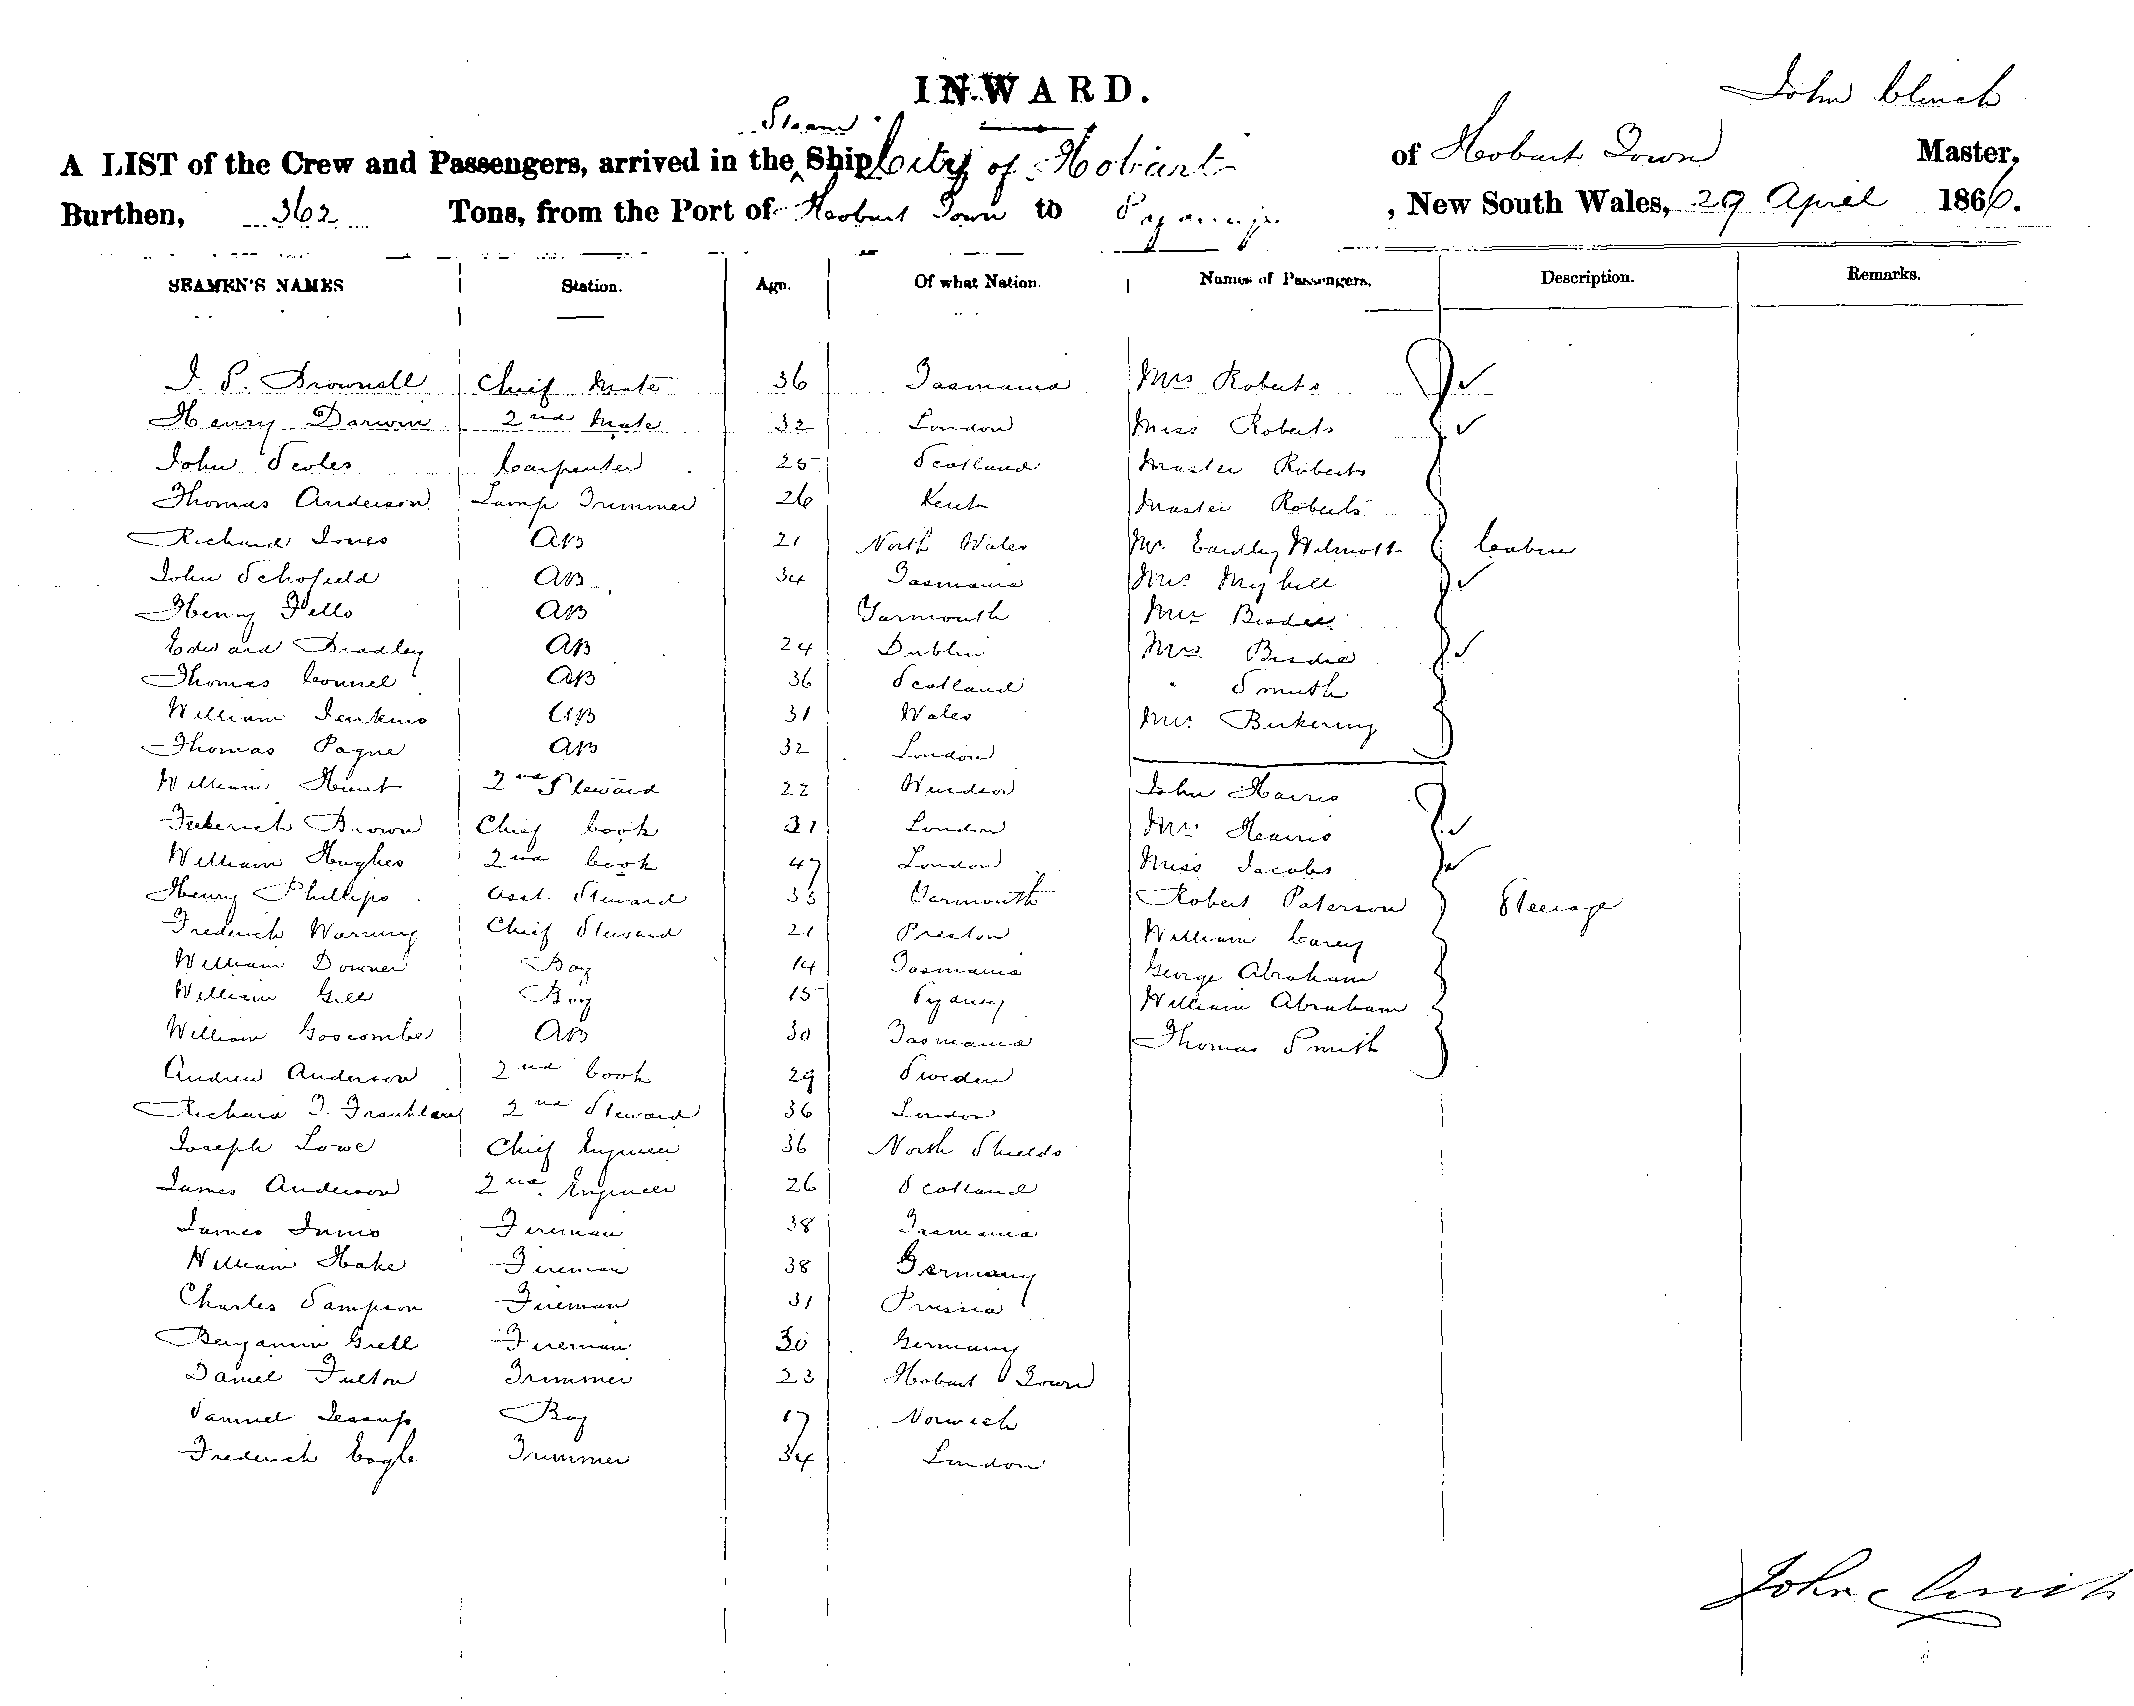 INWARD.
John Clinch
A LIST of the Crew and Passengers, arrived in the Steam Ship City of Hobart of Hobart Town Master,
Burthen, 362 Tons, from the Port of Hobart Town to , New South Wales, 29 April 1866.
SEAMEN'S NAMES Station. Age. Of what Nation. Names of Passengers. Description. Remarks.
J. S. Brownell Chief Mate 36 Tasmania Mrs Roberts
Henry Darwin 2nd Mate 32 London Miss Roberts
John Scoles Carpenter 25 Scotland Master Roberts
Thomas Anderson Lamp Trimmer 26 Kent Master Roberts
Richard Jones AB 21 North Wales Mr Eardley Wilmott Cabin
John Schofield AB 34 Tasmania Mrs Myhill
Henry Fells AB Yarmouth Mr Bisdee
Edward Bradley AB 24 Dublin Mrs Bisdee
Thomas Connel AB 36 Scotland " Smith
William Jenkins AB 31 Wales Mr
Thomas Payne AB 32 London
William Hunt 2nd Steward 22 Windsor John Harris
Frederick Brown Chief Cook 31 London Mrs Harris
William Hughes 2nd Cook 47 London Miss Jacobs
Henry Phillips Asst. Steward 33 Yarmouth Robert Paterson Steerage
Frederick Warning Chief Steward 21 Preston William Carey
William Downer Boy 14 Tasmania George Abraham
William Gill Boy 15 Sydney William Abraham
William Goscombe AB 30 Tasmania Thomas Smith
Andrew Anderson 2nd Cook 29 Sweden
Richard T. 2nd Steward 36 London
Joseph Lowe Chief Engineer 36 North Shields
James Anderson 2nd Engineer 26 Scotland
James Innis Fireman 38 Tasmania
William Hake Fireman 38 Germany
Charles Sampson Fireman 31 Prussia
Benjamin Grell Fireman 30 Germany
Daniel Fulton Trimmer 23 Hobart Town
Samuel Jessup Boy 17 Norwich
Frederick Cogle Trimmer 34 London
John Clinch